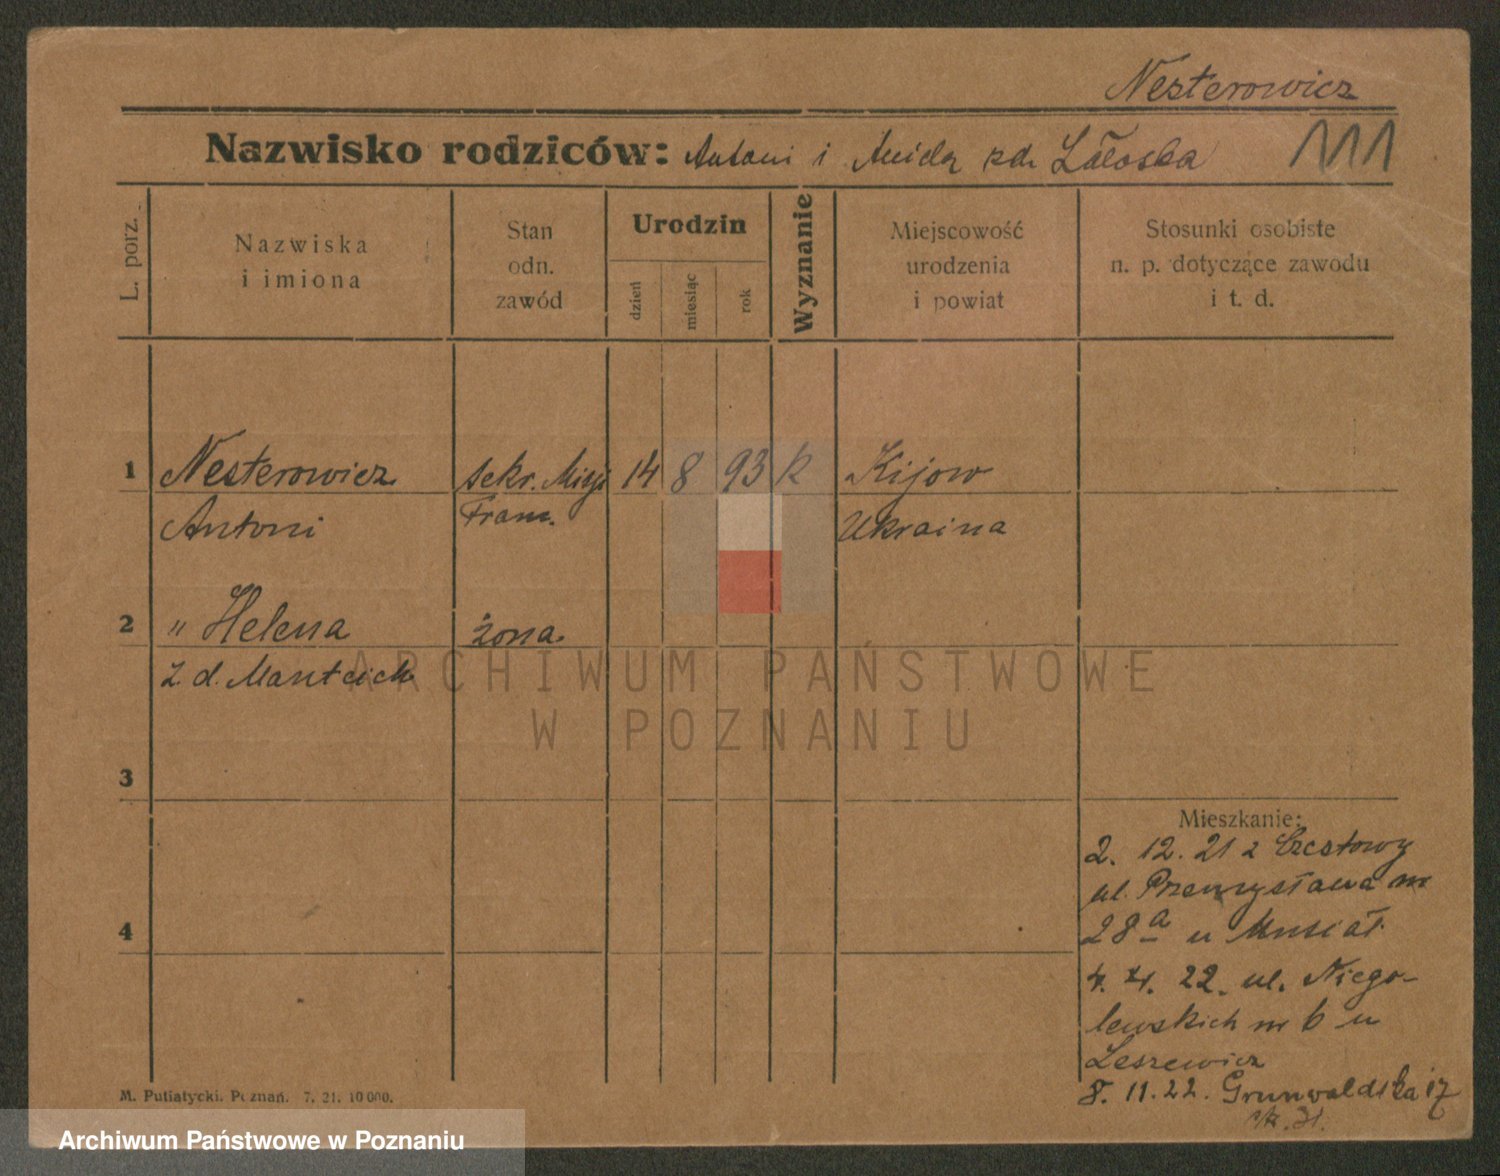 Nesterowicz
Nazwisko rodziców: Antoni i zd.
111
L. porz.
Nazwiska
i imiona
Stan
odn.
zawód
Urodzin
dzień
miesiąc
rok
Wyznanie
Miejscowość
urodzenia
i powiat
Stosunki osobiste
n. p. dotyczące zawodu
i t. d.
1 Nesterowicz sekr. Misji 14 8 93 k Kijow
Antoni Franc. Ukraina
2 " Helena żona
z d.
3
4
Mieszkanie:
2. 12. 21 z
ul. Przemysława nr
28a u Musiał
4. 4. 22. ul. Niego-
lewskich nr 6 u
Leszewicz
8. 11. 22. Grunwaldska 17
M. Putiatycki. Poznań. 7. 21. 10 000.
ARCHIWUM PAŃSTWOWE
W POZNANIU
Archiwum Państwowe w Poznaniu